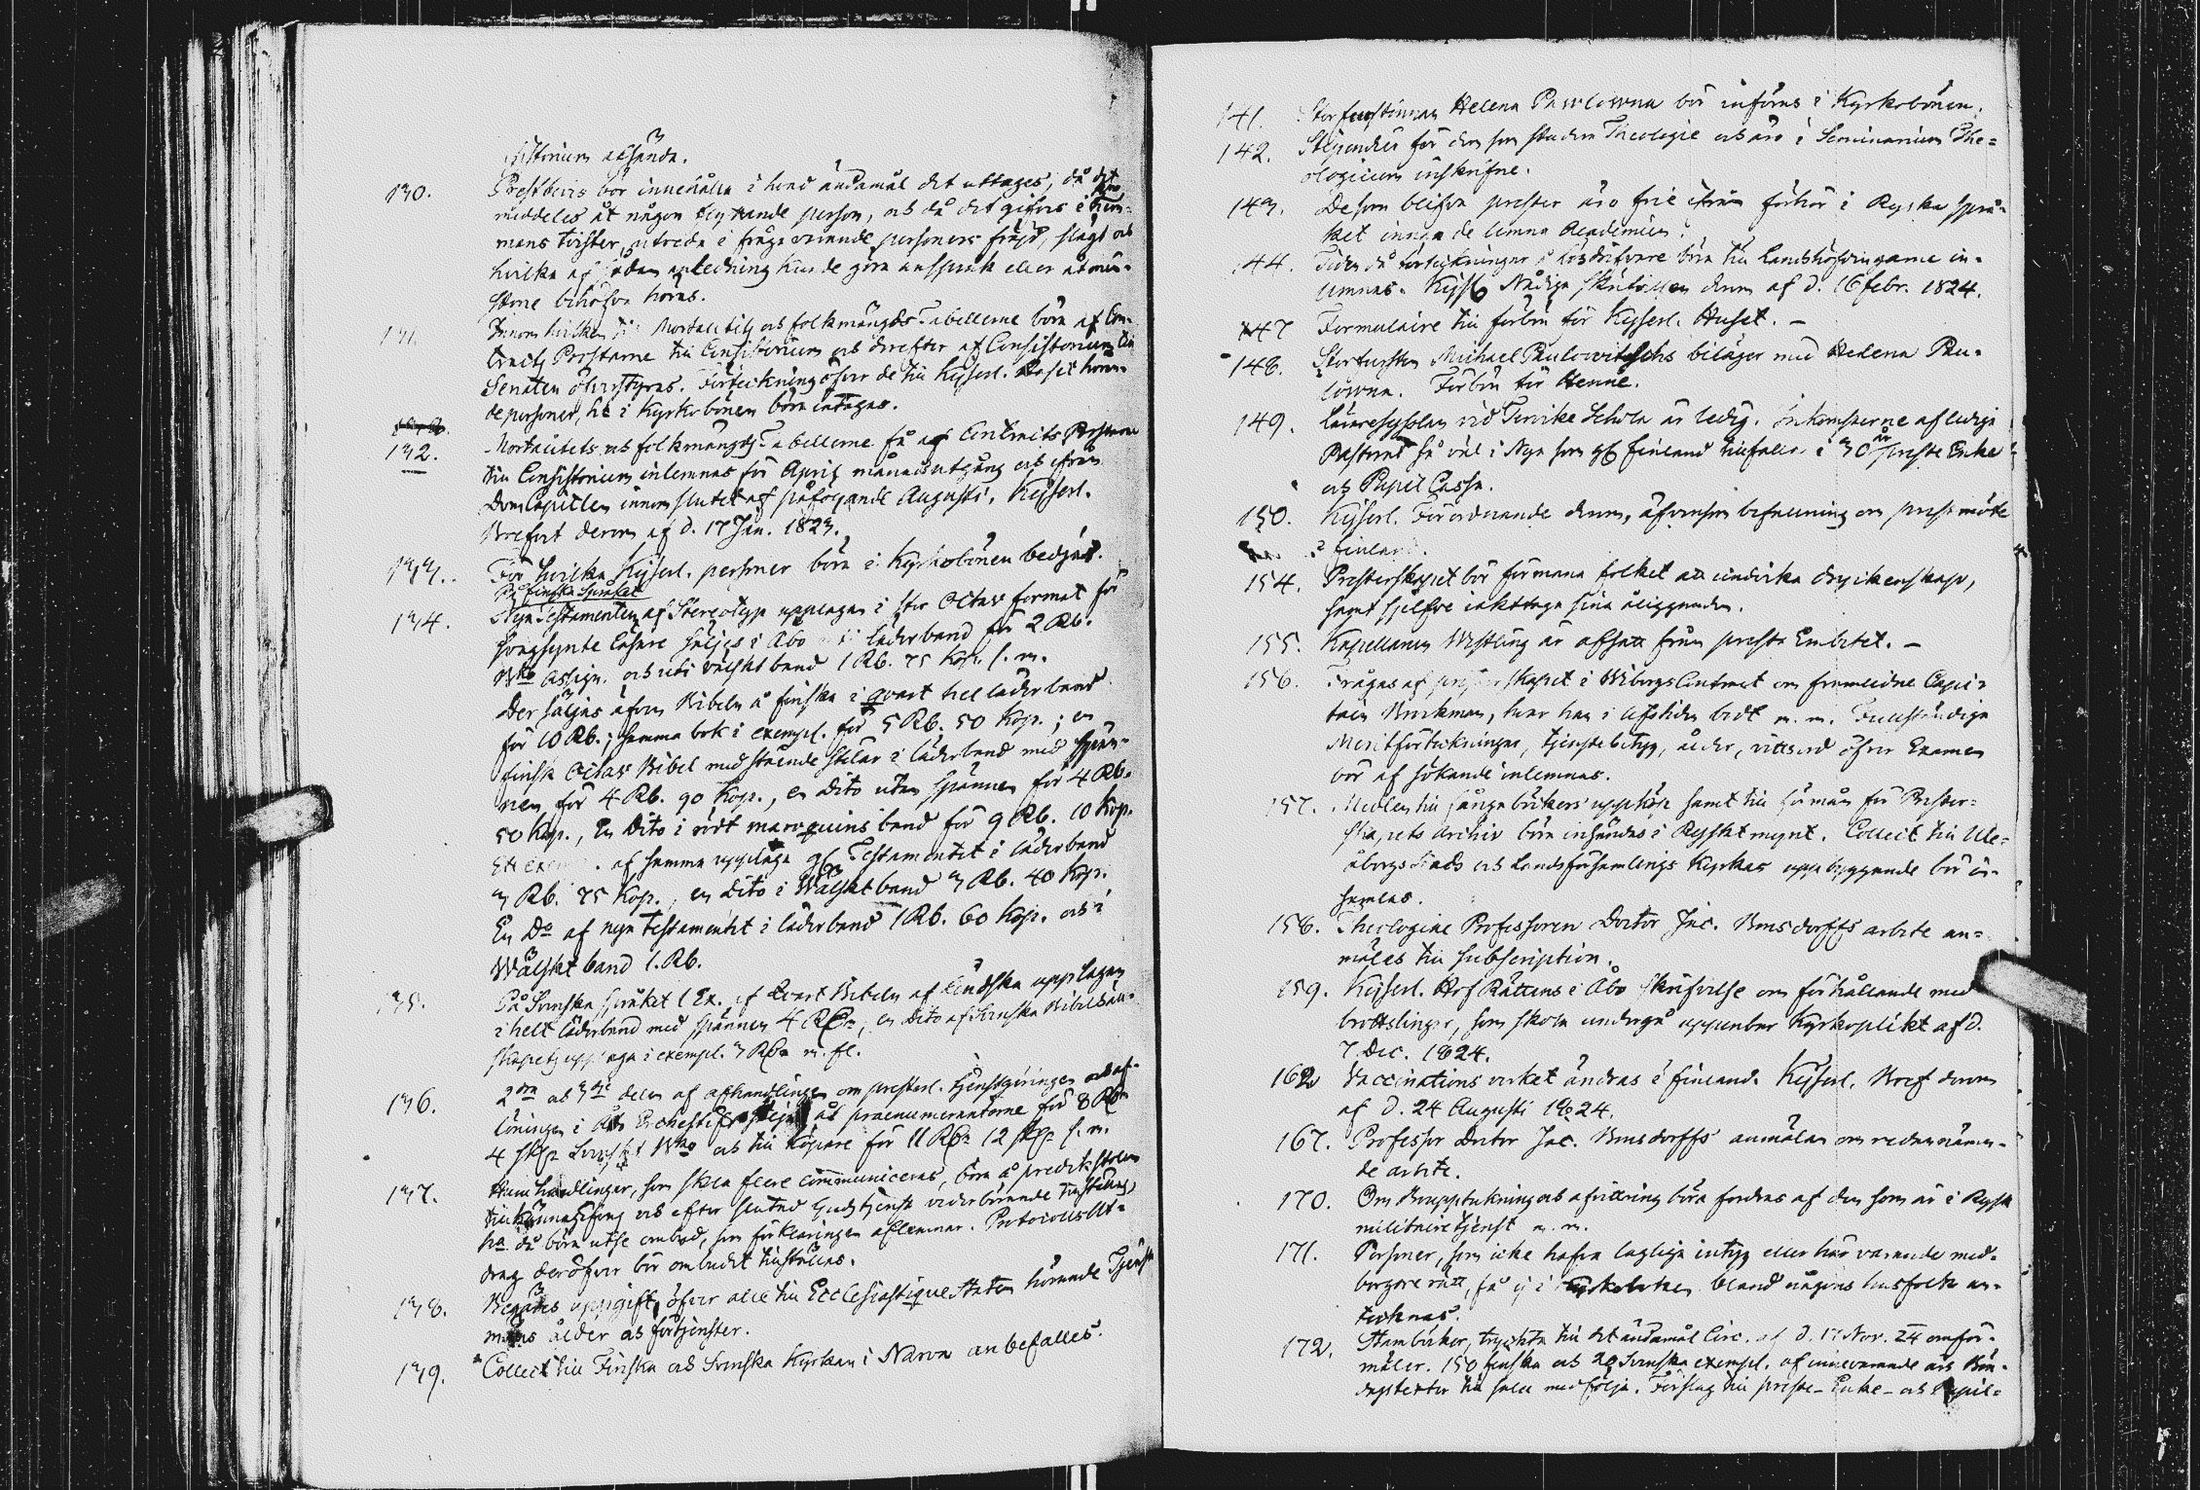 sistorium afsända.
130. Prestbevis bör innehålla i hvad ändamål det uttages, då det
meddeles åt någon flyttande person, och då det gifves i
mans tvister, utreda i fråga varande personers frejd, slägt och
hvilka af sådan anledning kunde göra anspråk eller åtmin-
stone behöfva höras.
131. Innom hvilken tid Mortalitets och folkmängds Tabellerne böra af Con-
tracts Prostarne till Consistorium och derefter af Consistorium till
Senaten öfverstyras. Förteckning öfver de till Kejserl. Huset höran-
de personer, hk i Kyrkobönen böra intagas.
132. Mortalitets och folkmängds Tabellerne få af Contracts Prostarne
till Consistorium inlemnas för April månads utgång och ifrån
DomCapitlen innom slutet af påföljande Augusti. Kejserl.
Brefvet derom af d. 17 Jan. 1823.
133. För hvilka Kejserl. personer böra i Kyrkobönen bedjas.
På finska Språket
134. Nya Testamenten af Stereotyp upplagan i stor Octav format för
svagsynte läsare säljes i Åbo i läderband för 2 Rb.
Bko Assign. och uti välskt band 1 Rb. 75 Kop. s. m.
Der säljas äfven Bibeln å finska i qvart hel läderband
för 10 Rb.; samma bok i exempl. för 5 Rb. 50 Kop.; en
finsk Octav Bibel med stående stilar i läderband med spän-
nen för 4 Rb. 90 Kop., en dito utan spännen för 4 Rb.
50 Kop., En Dito i rödt maroquins band för 9 Rb. 10 Kop.
Ett exempl. af samma upplaga Testamentet i läderband
3 Rb. 75 Kop., en dito i Wälskt band 3 Rb. 40 Kop.
En Do af nya Testamentet i läderband 1 Rb. 60 Kop. och i
Wälskt band 1. Rb.
135. På Svenska språket 1 Ex. af Qvart Bibeln af upplagan
i helt läderband med spännen 4 Rdr, en dito af Svenska Bibelsäll-
skapets upplaga i exempl. 3 Rdr m. fl.
136. 2dra och 3dje delen af afhandlingen om presterl. tjenstgöringen och af-
löningen i Åbo Erchestift åt praenumeranterne för 8 Rdr
4 sk. Svenskt Bko och till köpare för 11 Rdr 12 sk. s. m.
137. Handlingar, som skola flere communiceras, böra å predikstolen
tillkännagifvas och efter slutad Gudstjenst vederbörande tillställas,
hka då böra utse ombud, som förklaringen aflemnar. Protocolls Ut-
drag deröfver bör ombudet tillställas.
138. Begäres uppgift öfver alle till Ecclesiastique Staten hörande Tjenste
mäns ålder och förtjenster.
139. Collect till Finska och Svenska Kyrkan i Narva anbefalles.
141. Storfurstinnan Helena Pawlowna bör införas i Kyrkobönen.
142. Stipendier för dem som studera Theologie och äro i Seminarium The-
ologicum inskrifne.
143. De som blifva prester äro frie ifrån förhör i Ryska språ-
ket innan de lemna Academien.
144. Tiden då förteckningar å lösdrifvare böra till Landshöfdingarne in-
lemnas. Kejs. Nådiga skrifvelsen derom af d. 16 febr. 1824.
147 Formulaire till förbön för Kejserl. Huset. –
148. Storfursten Michael Paulowitschs biläger med Helena Pau-
lowna. Förbön för Henne.
149. Läraresysslan vid Schola är ledig. Inkomsterne af lediga
Pastorat så väl i Nya som Gl. Finland tillfaller i 30 år Preste Enke
och Pupil Cassa.
150. Kejserl. Förordnande derom, äfvensom befallning om prestmöte
i Finland.
154. Presterskapet bör förmana folket att undvika dryckenskap,
samt sjelfve iakttaga sina åligganden.
155. Kapellanen Westling är afsatt från preste Embetet. –
156. Frågas af presterskapet i Wiborgs Contract om framlidne Capi-
tain Brinkman, hvar han i lifstiden bodt m. m. Fullständiga
Meritförteckningar, tjenstebetyg, ålder, vittsord öfver Examen
bör af sökande inlemnas.
157. Medlen till sånge böckers uppköp samt till förmån för Prester-
skapets Archiv böra insändas i Ryskt mynt. Collect till Ule-
åborgs Stads och Landsförsamlings Kyrkas uppbyggande bör in-
samlas.
158. Theologiae Professoren Doctor Jac. Bonsdorffs arbete an-
mäles till subscription.
159. Kejserl. Hof Rättens i Åbo skrifvelse om förhållande med
brottslingar, som skola undergå uppenbar Kyrkoplikt af d.
7 Dec. 1824.
162 Vaccinations verket ändras i Finland. Kejserl. Bref derom
af d. 24 Augusti 1824.
167. Professor Doctor Jac. Bonsdorffs anmälan om redan nämn-
de arbete.
170. Om Bouppteckning och afvittring böra fordras af den som är i Rysk
militaire tjenst m. m.
171. Personer, som icke hafva lagliga intyg eller här varande med-
borgare rätt, få ej i Kyrkoboken bland någons husfolk an-
tecknas.
172. Stamböcker, tryckta till det ändamål Circ. af d. 17 Nov. 24 omför-
mäler. 150 finska och 20 Svenska exempl. af innevarande års Bön-
dagstexter till salu medfölja. Förslag till preste- Enke- och Pupil-